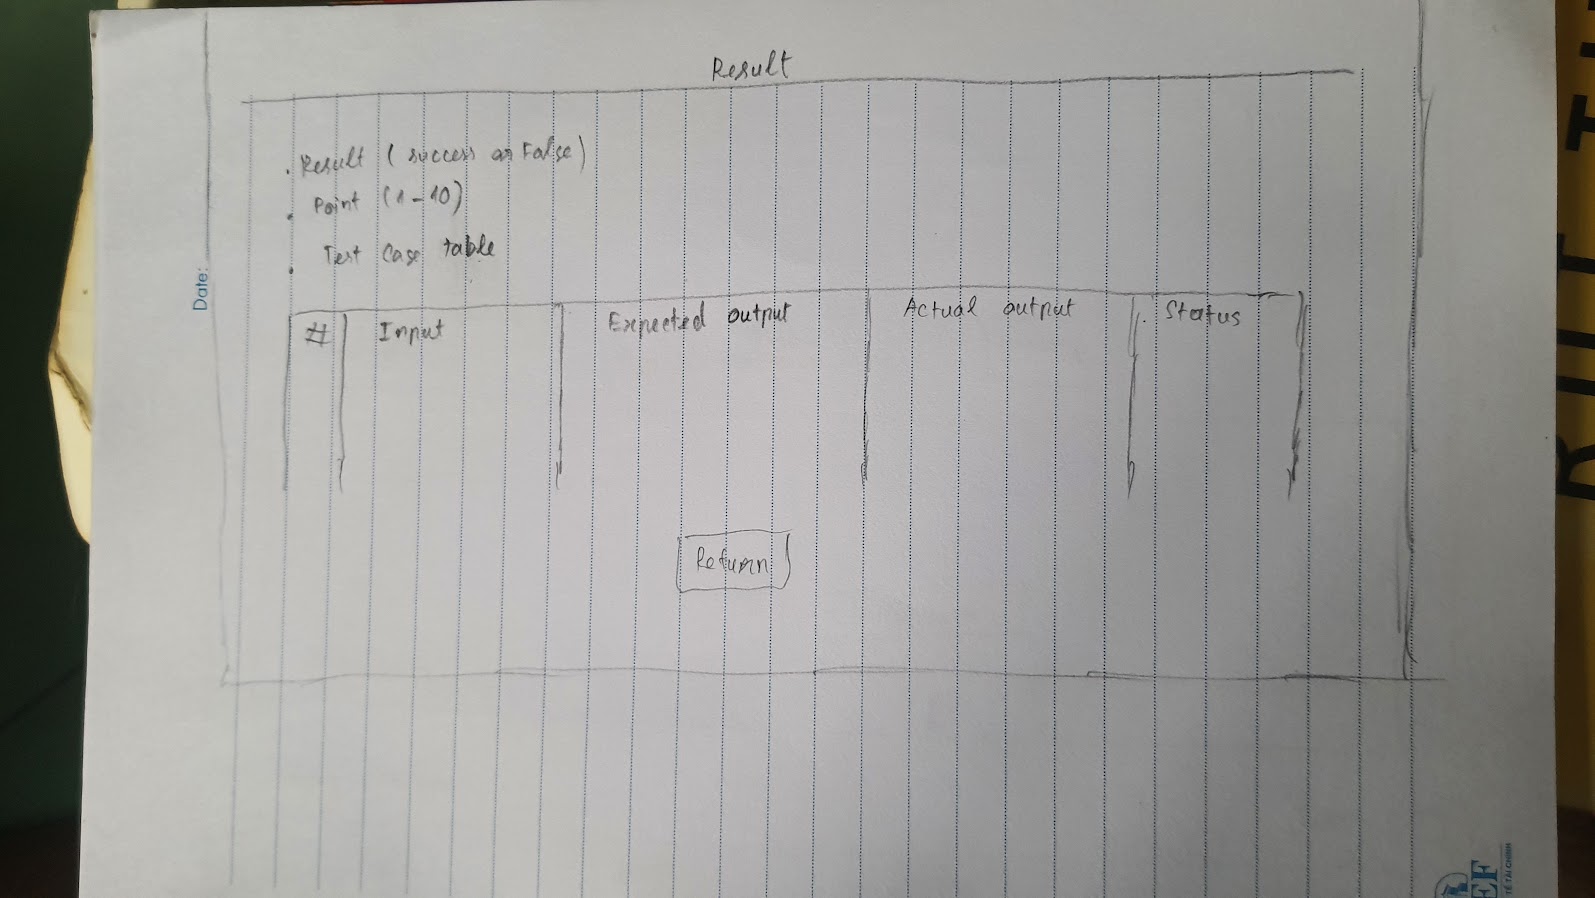 Result
. Result ( success or False)
. Point (1-10)
. Test Case table
# Input Expected output Actual output . Status
Return
Date:
EF
TẾ TÀI CHÍNH